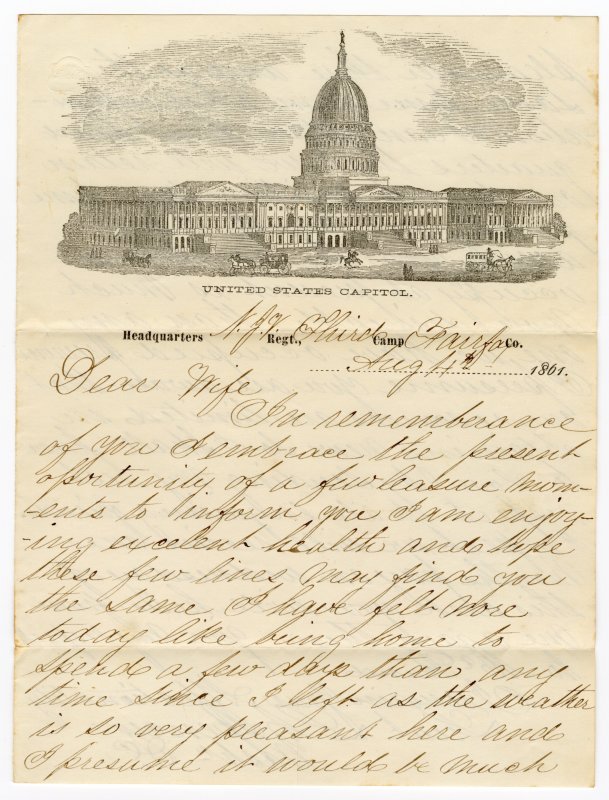 UNITED STATES CAPITOL.
Headquarters N.J.V. Regt., Third Camp Fairfax Co.
Aug 1861.
Dear Wife
In rememberance
of you I embrace the present
oportunity of a few leasure mom-
-ents to inform you I am enjoy-
-ing excelent health and hope
these few lines may find you
the same I have felt more
today like being home to
spend a few days than any
time since I left as the weather
is so very pleasant here and
I presume it would be much